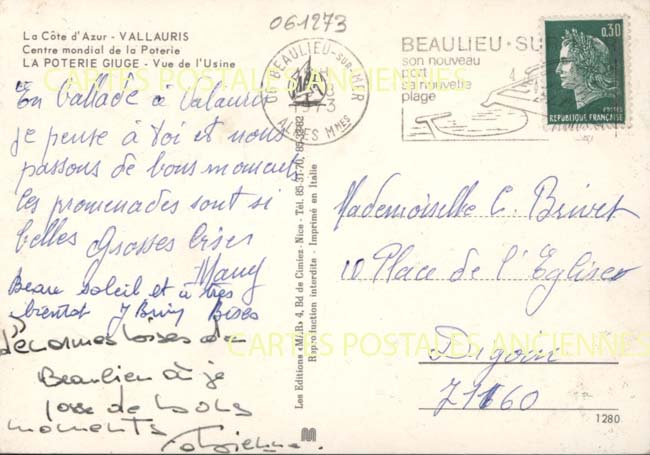 061273
La Côte d'Azur - VALLAURIS
Centre mondial de la Poterie
LA POTERIE GIUGE - Vue de l'Usine
06 BEAULIEU-SUR-MER
1973
ALPES Mmes
BEAULIEU-SU
son nouveau
port
sa nouvelle
plage
0,30
POSTES
REPUBLIQUE FRANÇAISE
CARTES POSTALES ANCIENNES
En ballade à Valauris
je pense à toi et nous
passons de bons moments
les promenades sont si
belles Grosses bises
Many
Beau soleil et à très
bientot J Bises
d'énormes bises de
Beaulieu où je
passe de bons
moments
Les Editions "MAR" 4, Bd de Cimiez - Nice - Tél.
Reproduction interdite - Imprimé en Italie
Mademoiselle C. Brivet
10 Place de l'Eglise
Digoin
71160
CARTES POSTALES ANCIENNES
1280